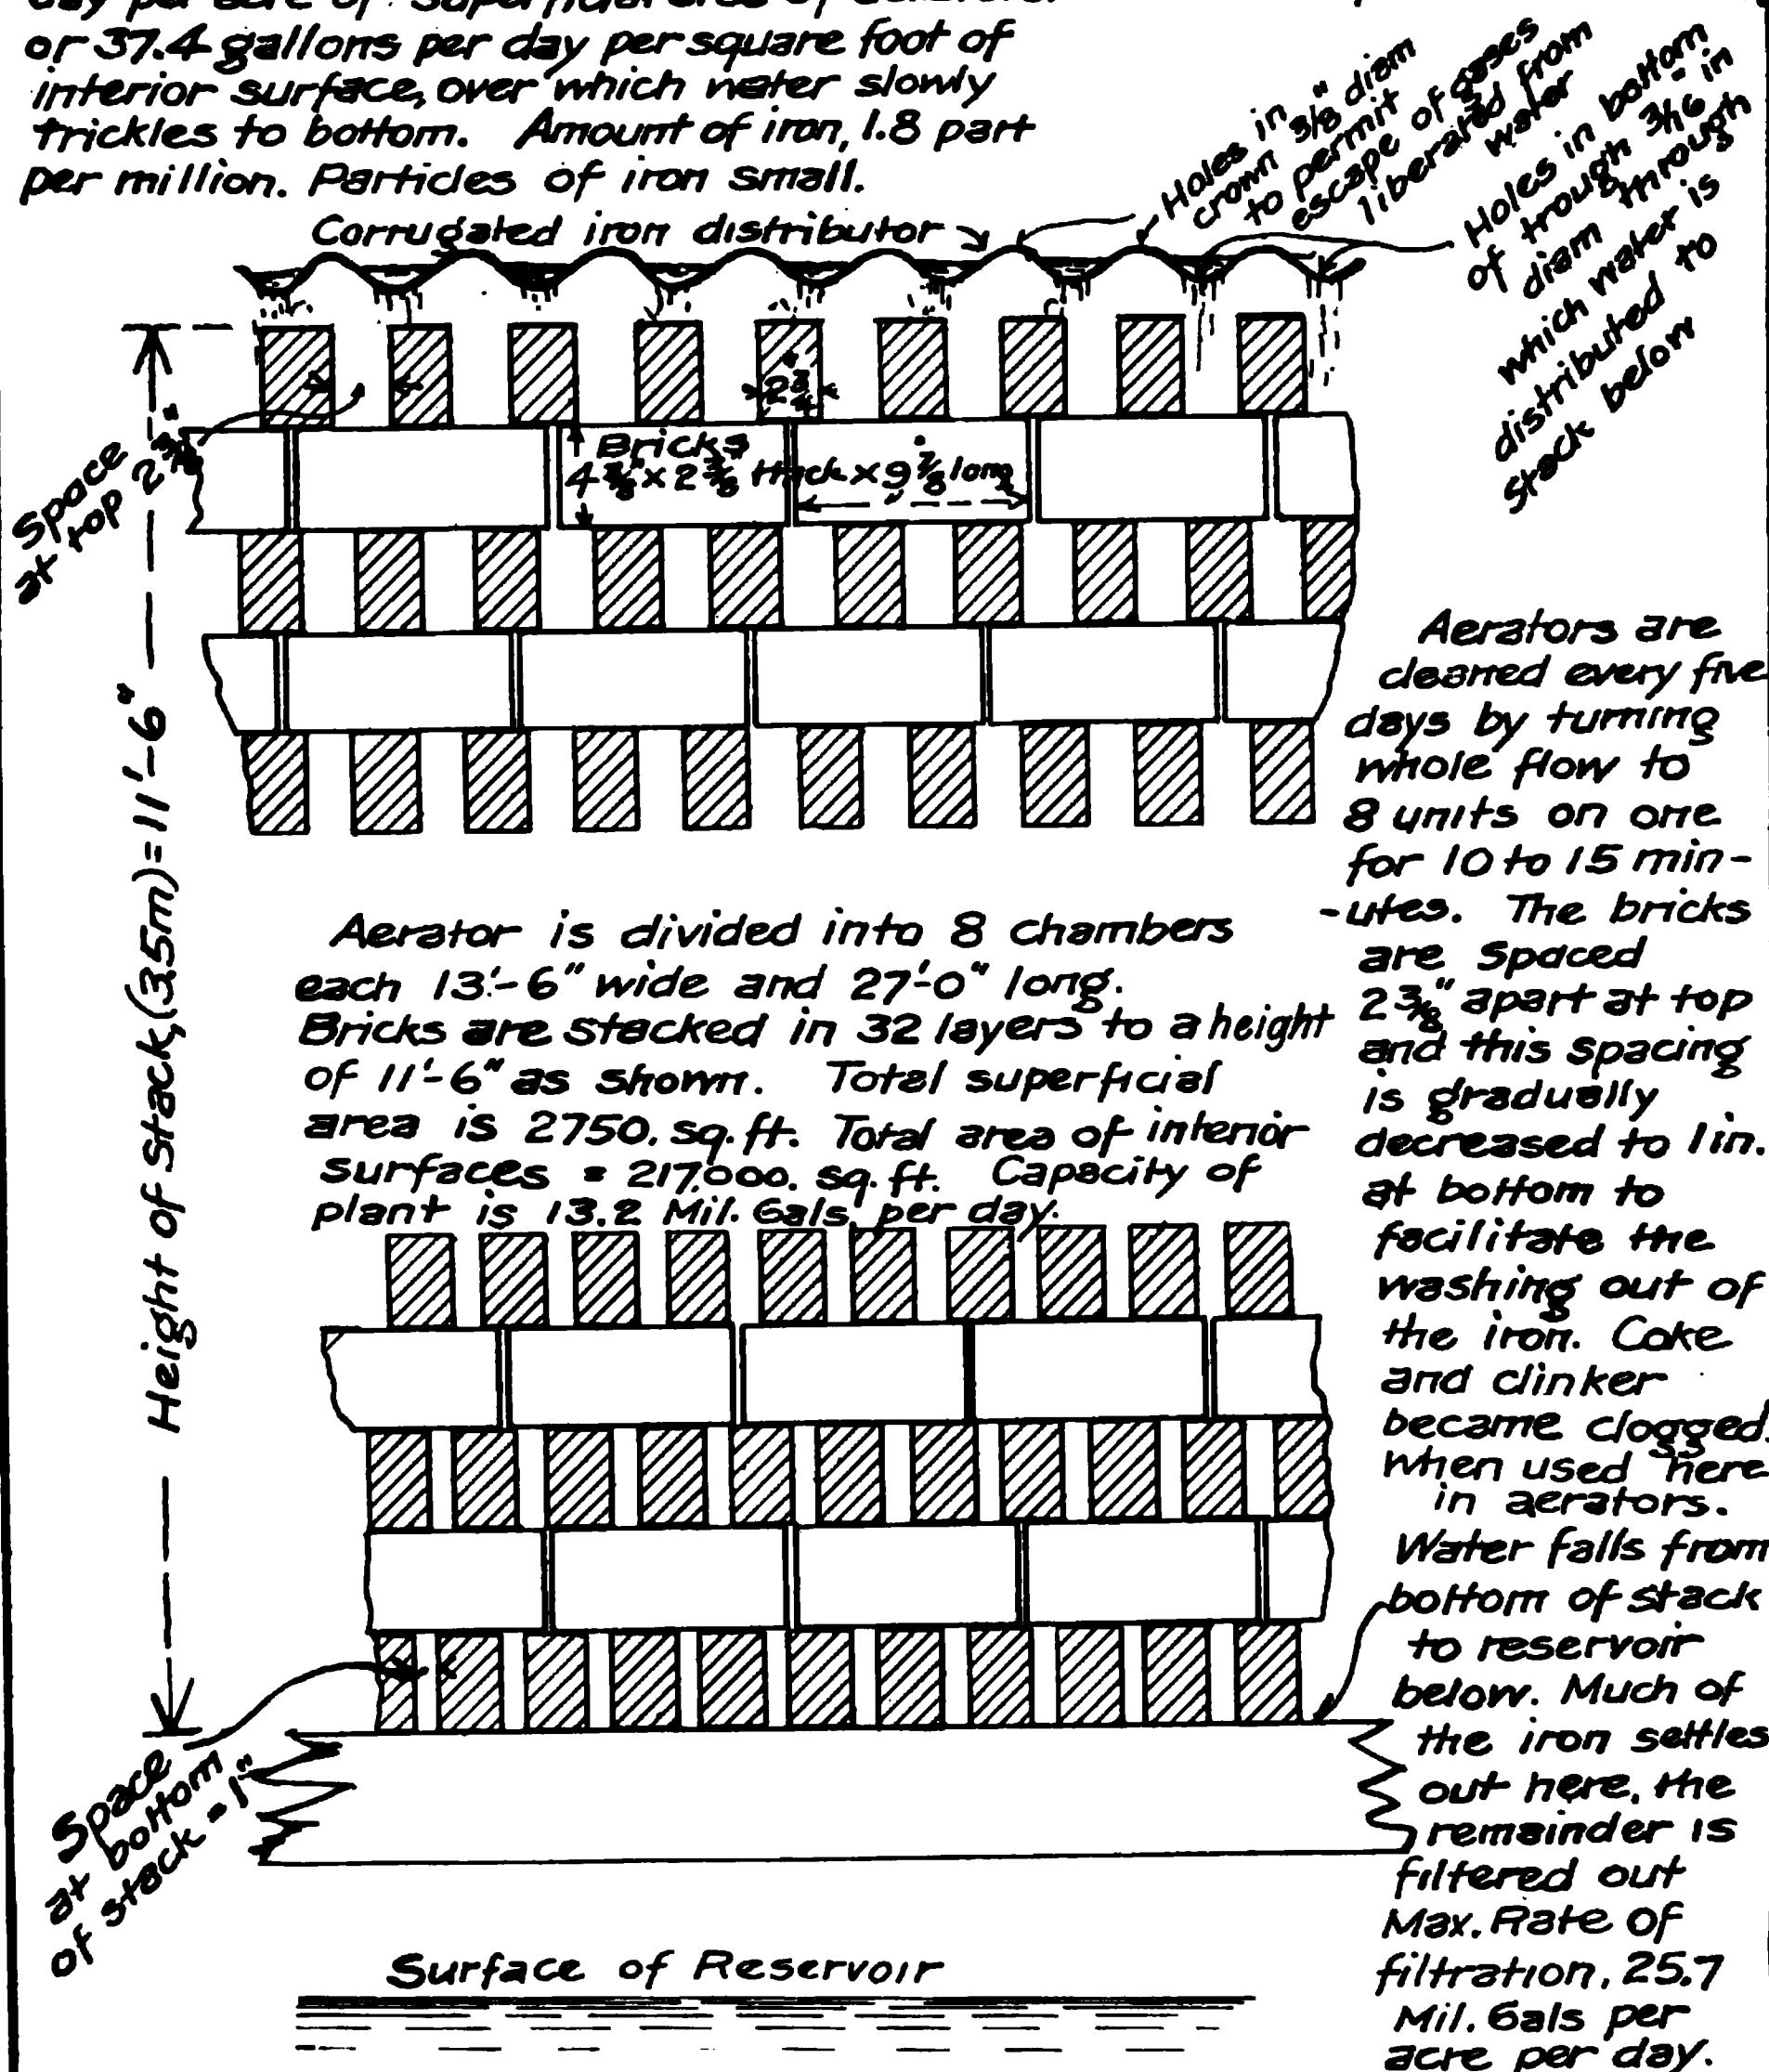 day per acre of superficial area of aerator
or 37.4 gallons per day per square foot of
interior surface, over which water slowly
trickles to bottom. Amount of iron, 1.8 part
per million. Particles of iron small.
Corrugated iron distributor
Holes in
crown 3/8" diam
to permit
escape of gases
liberated from
water
Holes in bottom
of trough 3/16" in
diam through
which water is
distributed to
stack below
Space
at top 2 3/8"
2 3/4"
Bricks
4 7/8" x 2 3/8 thick x 9 7/8 long
Height of stack, (3.5m) = 11'-6"
Aerator is divided into 8 chambers
each 13'-6" wide and 27'-0" long.
Bricks are stacked in 32 layers to a height
of 11'-6" as shown. Total superficial
area is 2750. sq. ft. Total area of interior
surfaces = 217,000. sq. ft. Capacity of
plant is 13.2 Mil. Gals. per day.
Aerators are
cleaned every five
days by turning
whole flow to
8 units on one
for 10 to 15 min-
-utes. The bricks
are spaced
2 3/8" apart at top
and this spacing
is gradually
decreased to 1 in.
at bottom to
facilitate the
washing out of
the iron. Coke
and clinker
became clogged.
when used here
in aerators.
Water falls from
bottom of stack
to reservoir
below. Much of
the iron settles
out here, the
remainder is
filtered out
Max. Rate of
filtration, 25.7
Mil. Gals per
acre per day.
Space
at bottom
of stack = 1"
Surface of Reservoir